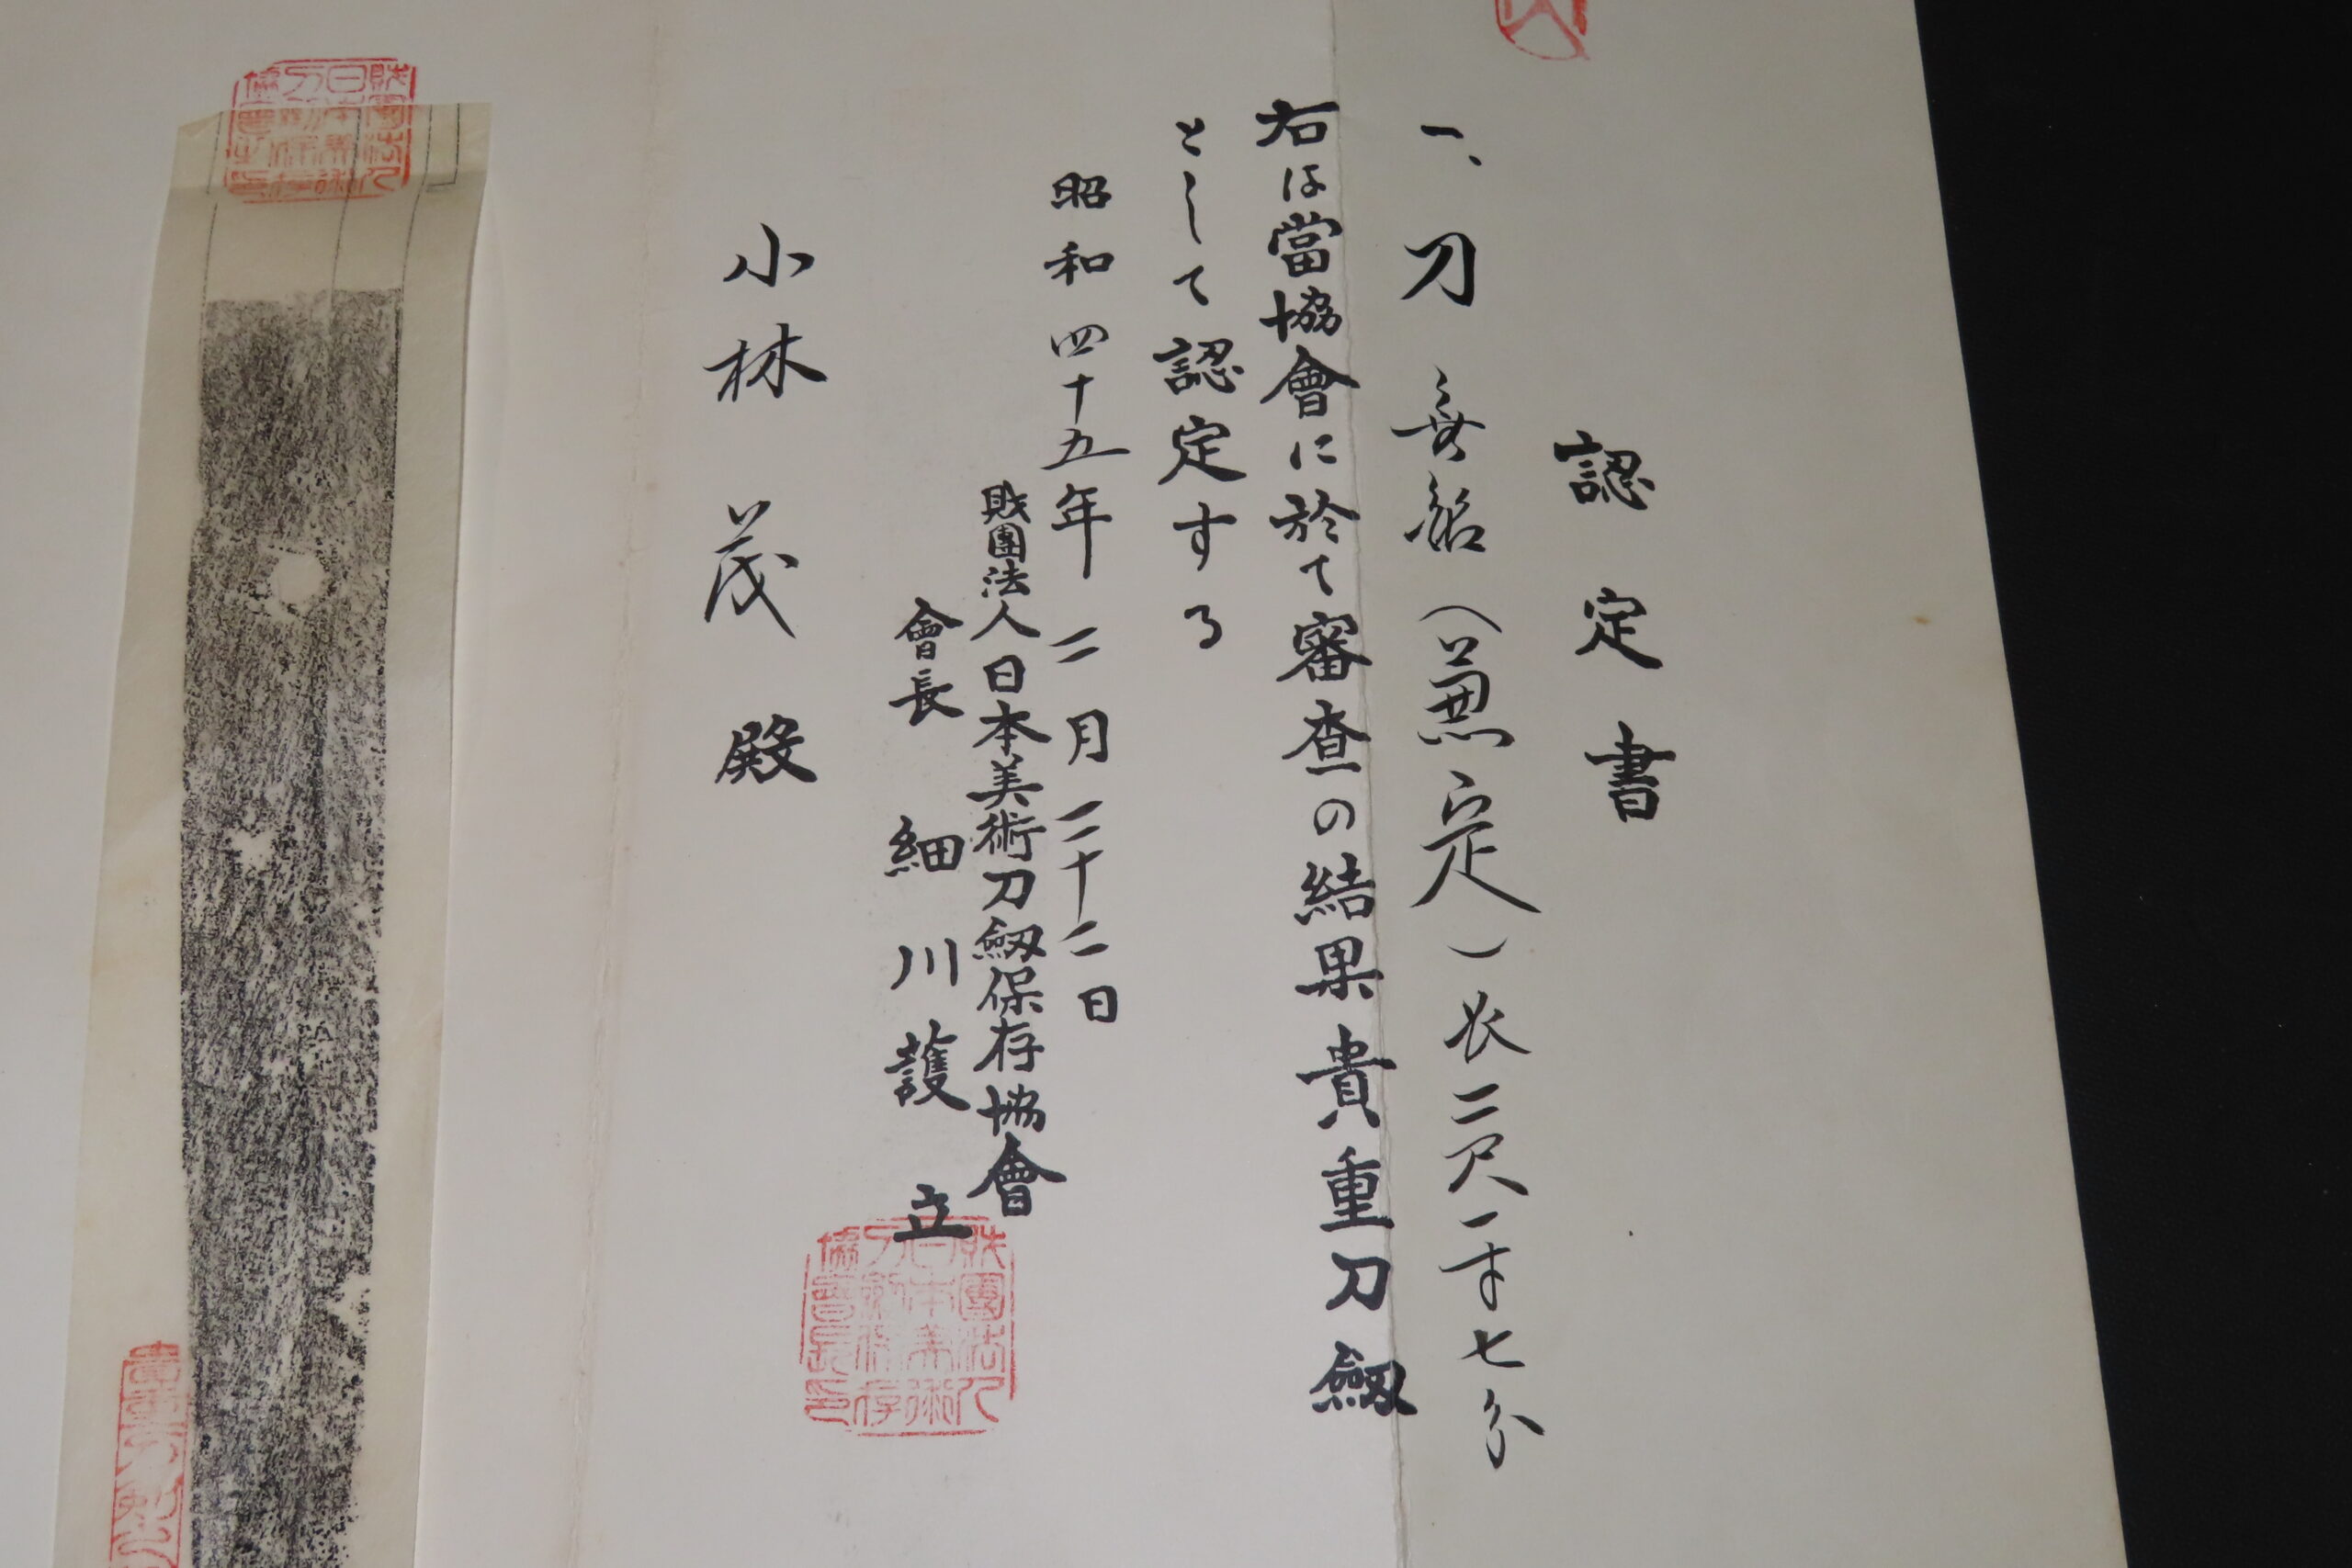 認定書
一、刀 無銘(兼定)長二尺一寸七分
右は當協會に於て審査の結果貴重刀劔
として認定する
昭和四十五年二月二十二日
財團法人日本美術刀劔保存協會
會長 細川護立
小林 茂 殿
財團法人日本美術刀劔保存協會長印
財團法人日本美術刀劔保存協會之印